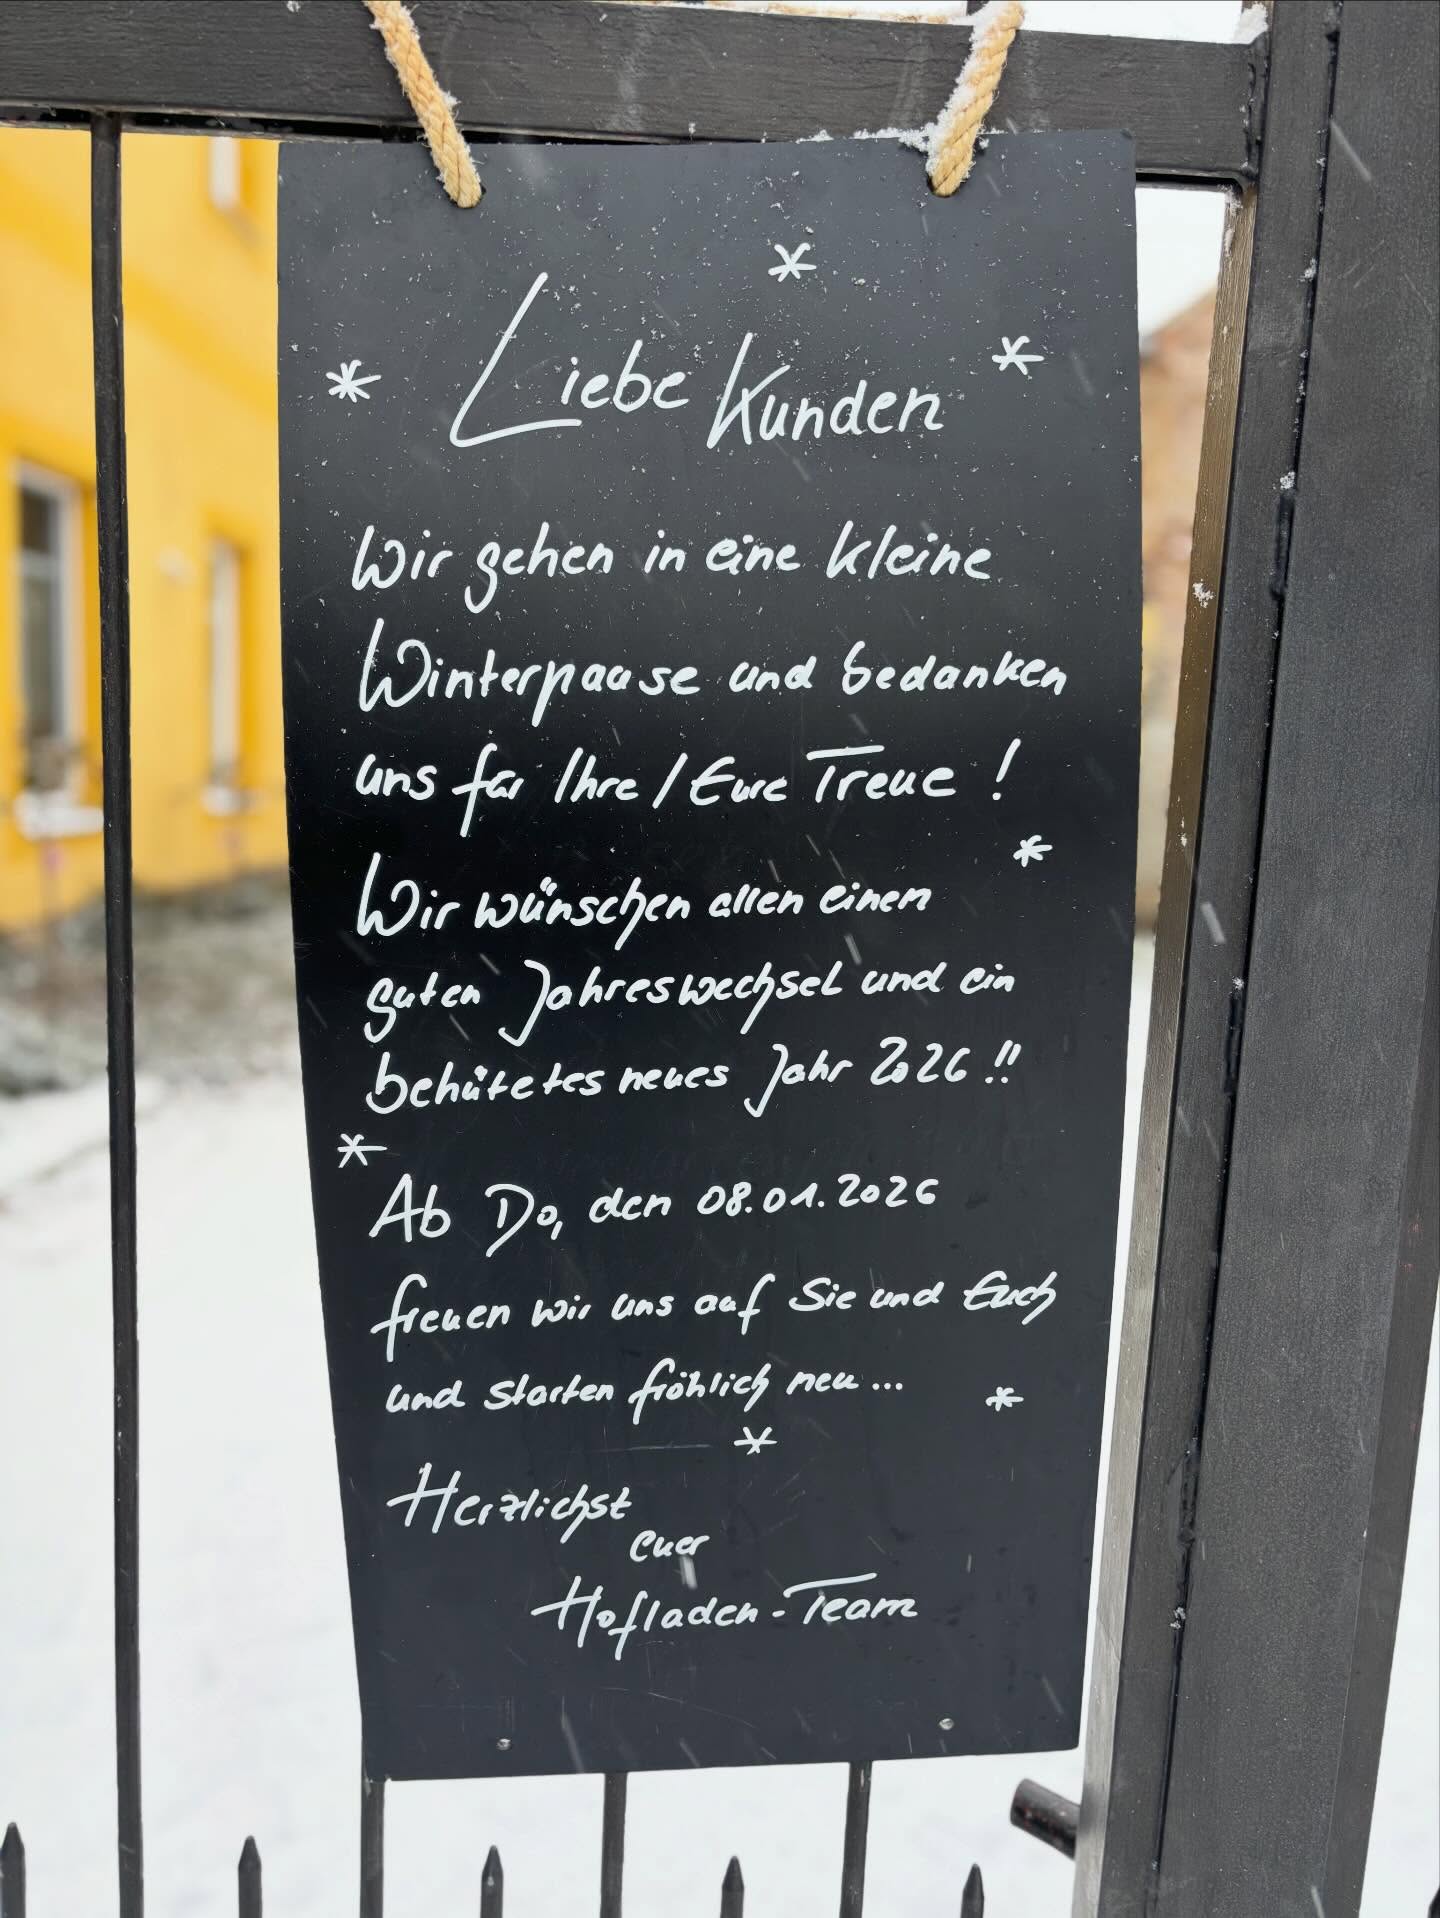 Liebe Kunden
Wir gehen in eine kleine
Winterpause und bedanken
uns für Ihre / Eure Treue !
Wir wünschen allen einen
guten Jahreswechsel und ein
behütetes neues Jahr 2026 !!
Ab Do, den 08.01.2026
freuen wir uns auf Sie und Euch
und starten fröhlich neu ...
Herzlichst
euer
Hofladen-Team